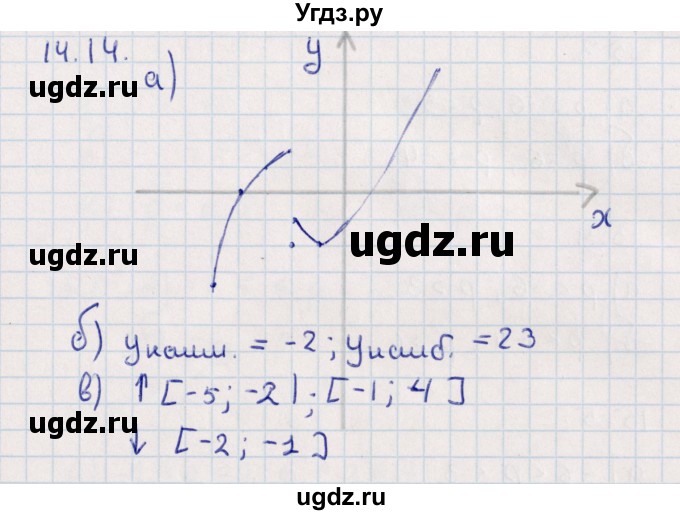 Угдз.ру
14.14.
a)
y
ugdz.ru
ugdz.ru
x
ugdz.ru
ugdz.ru
б) yнаим. = -2; yнаиб. = 23
в) ↑ [-5; -2); [-1; 4]
ugdz.ru
↓ [-2; -1]
ugdz.ru
ugdz.ru